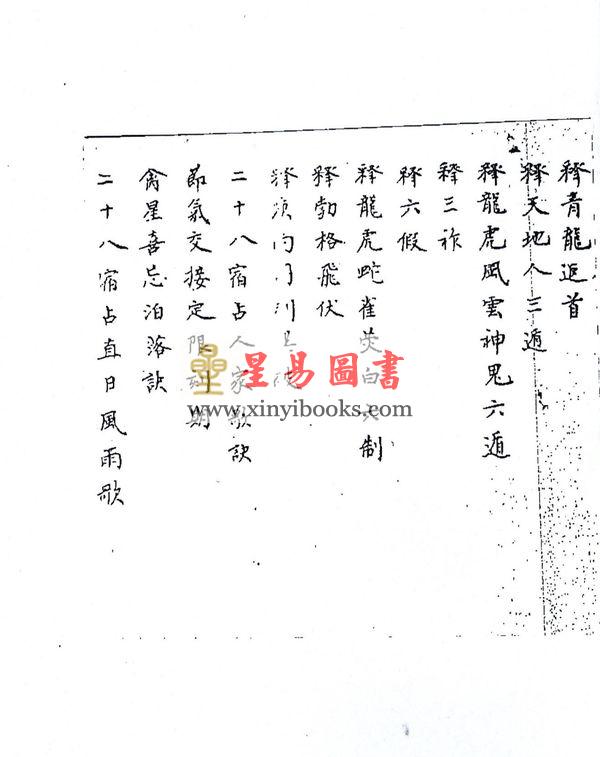 釋青龍返首
釋天地人三遁
釋龍虎風雲神鬼六遁
釋三詐
釋六假
釋龍虎蛇雀熒白 制
釋勃格飛伏
釋
二十八宿占人家歌訣
節氣交接定限 期
禽星喜忌泊落訣
二十八宿占直日風雨歌
星易圖書
www.xinyibooks.com